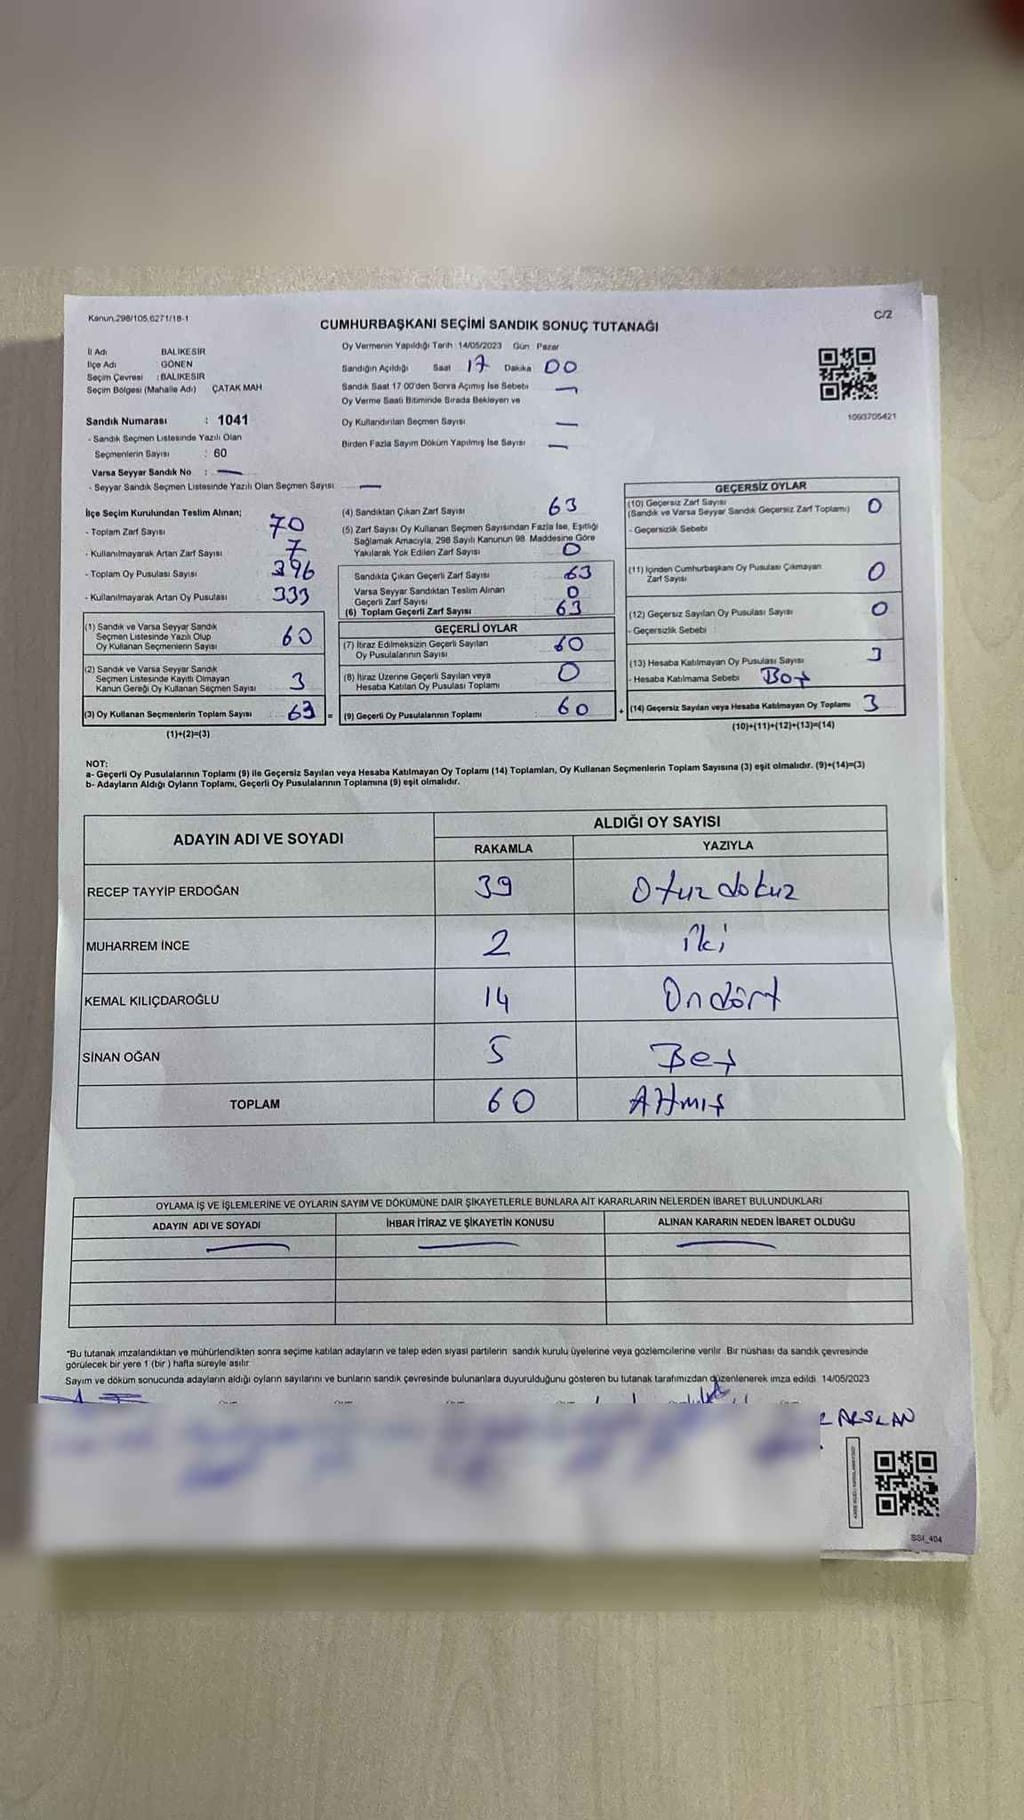 Kanun.298/105,6271/18-1
C/2
CUMHURBAŞKANI SEÇİMİ SANDIK SONUÇ TUTANAĞI
İl Adı BALIKESİR
İlçe Adı GÖNEN
Seçim Çevresi : BALIKESİR
Seçim Bölgesi (Mahalle Adı) ÇATAK MAH
Sandık Numarası : 1041
- Sandık Seçmen Listesinde Yazılı Olan
Seçmenlerin Sayısı : 60
Varsa Seyyar Sandık No : —
- Seyyar Sandık Seçmen Listesinde Yazılı Olan Seçmen Sayısı —
Oy Vermenin Yapıldığı Tarih 14/05/2023 Gün Pazar
Sandığın Açıldığı Saat 17 Dakika 00
Sandık Saat 17 00'den Sonra Açımış İse Sebebi —
Oy Verme Saati Bitiminde Sırada Bekleyen ve
Oy Kullandırılan Seçmen Sayısı —
Birden Fazla Sayım Döküm Yapılmış İse Sayısı —
1093705421
İlçe Seçim Kurulundan Teslim Alınan;
- Toplam Zarf Sayısı 70
- Kullanılmayarak Artan Zarf Sayısı 7
- Toplam Oy Pusulası Sayısı 396
- Kullanılmayarak Artan Oy Pusulası 333
(1) Sandık ve Varsa Seyyar Sandık
Seçmen Listesinde Yazılı Olup
Oy Kullanan Seçmenlerin Sayısı 60
(2) Sandık ve Varsa Seyyar Sandık
Seçmen Listesinde Kayıtlı Olmayan
Kanun Gereği Oy Kullanan Seçmen Sayısı 3
(3) Oy Kullanan Seçmenlerin Toplam Sayısı 63 =
(1)+(2)=(3)
(4) Sandıktan Çıkan Zarf Sayısı 63
(5) Zarf Sayısı Oy Kullanan Seçmen Sayısından Fazla İse, Eşitliği
Sağlamak Amacıyla, 298 Sayılı Kanunun 98. Maddesine Göre
Yakılarak Yok Edilen Zarf Sayısı 0
Sandıkta Çıkan Geçerli Zarf Sayısı 63
Varsa Seyyar Sandıktan Teslim Alınan
Geçerli Zarf Sayısı 0
(6) Toplam Geçerli Zarf Sayısı 63
GEÇERLİ OYLAR
(7) İtiraz Edilmeksizin Geçerli Sayılan
Oy Pusulalarının Sayısı 60
(8) İtiraz Üzerine Geçerli Sayılan veya
Hesaba Katılan Oy Pusulası Toplamı 0
(9) Geçerli Oy Pusulalarının Toplamı 60 +
GEÇERSİZ OYLAR
(10) Geçersiz Zarf Sayısı
(Sandık ve Varsa Seyyar Sandık Geçersiz Zarf Toplamı) 0
- Geçersizlik Sebebi
(11) İçinden Cumhurbaşkanı Oy Pusulası Çıkmayan
Zarf Sayısı 0
(12) Geçersiz Sayılan Oy Pusulası Sayısı 0
- Geçersizlik Sebebi
(13) Hesaba Katılmayan Oy Pusulası Sayısı 3
- Hesaba Katılmama Sebebi Boş
(14) Geçersiz Sayılan veya Hesaba Katılmayan Oy Toplamı 3
(10)+(11)+(12)+(13)=(14)
NOT:
a- Geçerli Oy Pusulalarının Toplamı (9) ile Geçersiz Sayılan veya Hesaba Katılmayan Oy Toplamı (14) Toplamları, Oy Kullanan Seçmenlerin Toplam Sayısına (3) eşit olmalıdır. (9)+(14)=(3)
b- Adayların Aldığı Oyların Toplamı, Geçerli Oy Pusulalarının Toplamına (9) eşit olmalıdır.
ADAYIN ADI VE SOYADI ALDIĞI OY SAYISI
RAKAMLA YAZIYLA
RECEP TAYYİP ERDOĞAN 39 Otuz dokuz
MUHARREM İNCE 2 İki
KEMAL KILIÇDAROĞLU 14 On dört
SİNAN OĞAN 5 Beş
TOPLAM 60 Altmış
OYLAMA İŞ VE İŞLEMLERİNE VE OYLARIN SAYIM VE DÖKÜMÜNE DAİR ŞİKAYETLERLE BUNLARA AİT KARARLARIN NELERDEN İBARET BULUNDUKLARI
ADAYIN ADI VE SOYADI İHBAR İTİRAZ VE ŞİKAYETİN KONUSU ALINAN KARARIN NEDEN İBARET OLDUĞU
— — —
*Bu tutanak imzalandıktan ve mühürlendikten sonra seçime katılan adayların ve talep eden siyasi partilerin sandık kurulu üyelerine veya gözlemcilerine verilir. Bir nüshası da sandık çevresinde
görülecek bir yere 1 (bir ) hafta süreyle asılır.
Sayım ve döküm sonucunda adayların aldığı oyların sayılarını ve bunların sandık çevresinde bulunanlara duyurulduğunu gösteren bu tutanak tarafımızdan düzenlenerek imza edildi. 14/05/2023
ARSLAN
SSI_404